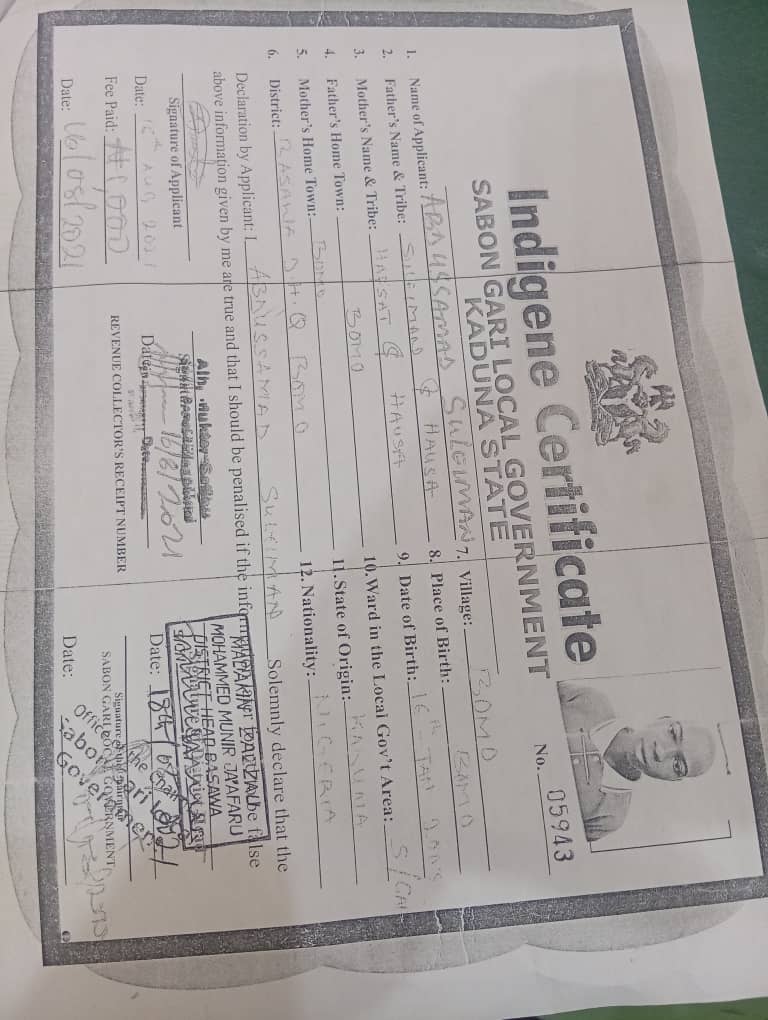 Indigene Certificate
SABON GARI LOCAL GOVERNMENT
KADUNA STATE
No. 05943
1. Name of Applicant: ABDUSSAMAD SULEIMAN
2. Father's Name & Tribe: & HAUSA
3. Mother's Name & Tribe: & HAUSA
4. Father's Home Town: BOMO
5. Mother's Home Town: BOMO
6. District: BASAWA D.H.Q BOMO
7. Village: BOMO
8. Place of Birth: BOMO
9. Date of Birth: 16th JAN
10. Ward in the Local Gov't Area:
11. State of Origin: KADUNA
12. Nationality: NIGERIA
Declaration by Applicant: I ABDUSSAMAD SULEIMAN Solemnly declare that the
above information given by me are true and that I should be penalised if the be false
Signature of Applicant
Date: 16th AUG 2021
Fee Paid:
Date: 16/08/2021
Alh.
Date:
16/8/2021
REVENUE COLLECTOR'S RECEIPT NUMBER
MOHAMMED MUNIR JA'AFARU
DISTRICT HEAD BASAWA
Date: 18th
SABON GARI LOCAL GOVERNMENT
Date: